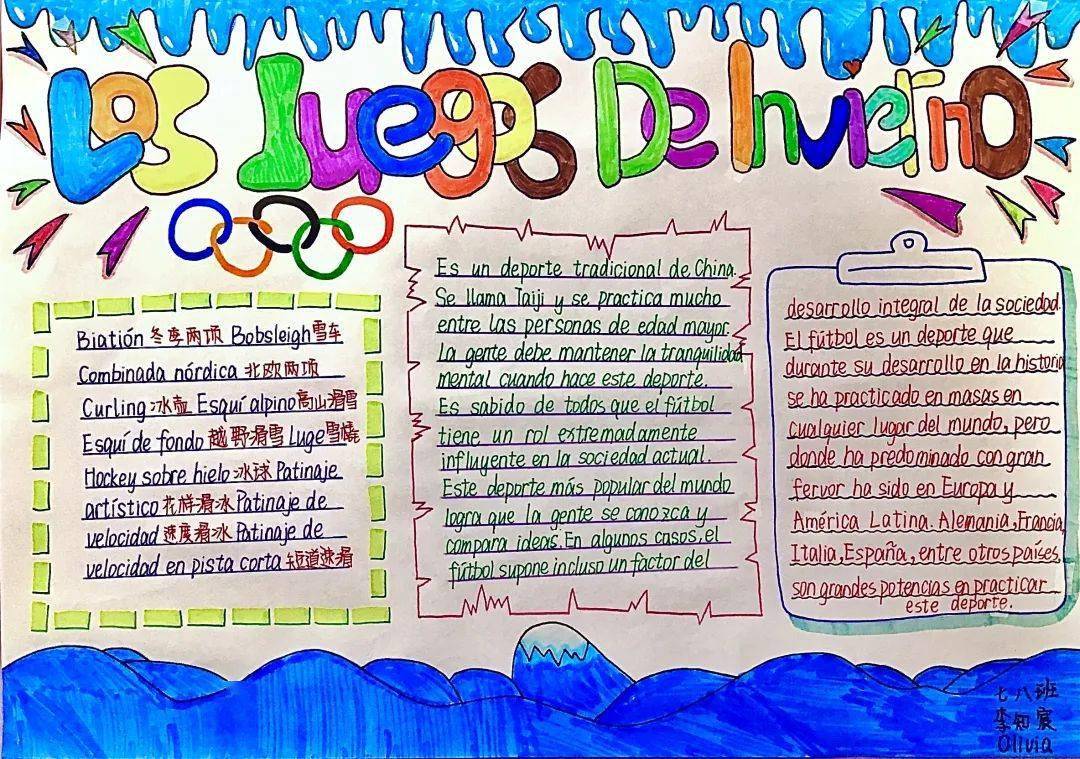 Los Juegos De Invierno
Biatión 冬季两项 Bobsleigh 雪车
Combinada nórdica 北欧两项
Curling 冰壶 Esquí alpino 高山滑雪
Esquí de fondo 越野滑雪 Luge 雪橇
Hockey sobre hielo 冰球 Patinaje
artístico 花样滑冰 Patinaje de
velocidad 速度滑冰 Patinaje de
velocidad en pista corta 短道速滑
Es un deporte tradicional de China.
Se llama Taiji y se practica mucho
entre las personas de edad mayor.
La gente debe mantener la tranquilidad
mental cuando hace este deporte.
Es sabido de todos que el fútbol
tiene un rol extremadamente
influyente en la sociedad actual.
Este deporte más popular del mundo
logra que la gente se conozca y
compara ideas. En algunos casos, el
fútbol supone incluso un factor del
desarrollo integral de la sociedad.
El fútbol es un deporte que
durante su desarrollo en la historia
se ha practicado en masas en
cualquier lugar del mundo, pero
donde ha predominado con gran
fervor ha sido en Europa y
América Latina. Alemania, Francia,
Italia, España, entre otros países,
son grandes potencias en practicar
este deporte.
七八班
李知宸
Olivia